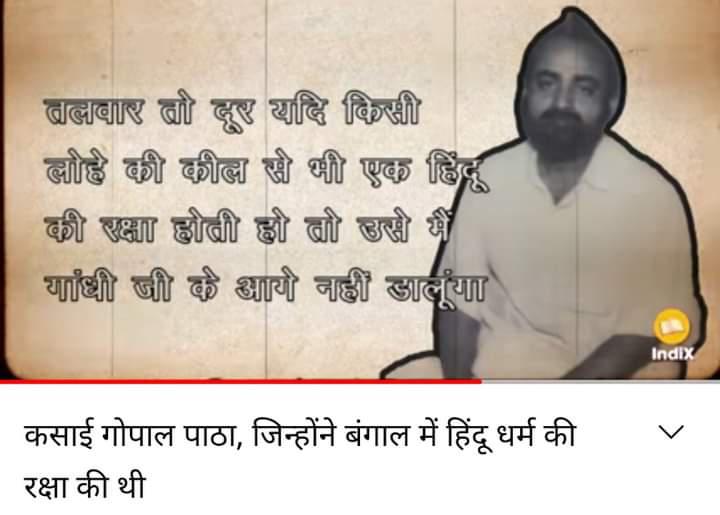 तलवार तो दूर यदि किसी
लोहे की कील से भी एक हिंदू
की रक्षा होती हो तो उसे मैं
गांधी जी के आगे नहीं डालूंगा
IndiX
कसाई गोपाल पाठा, जिन्होंने बंगाल में हिंदू धर्म की
रक्षा की थी